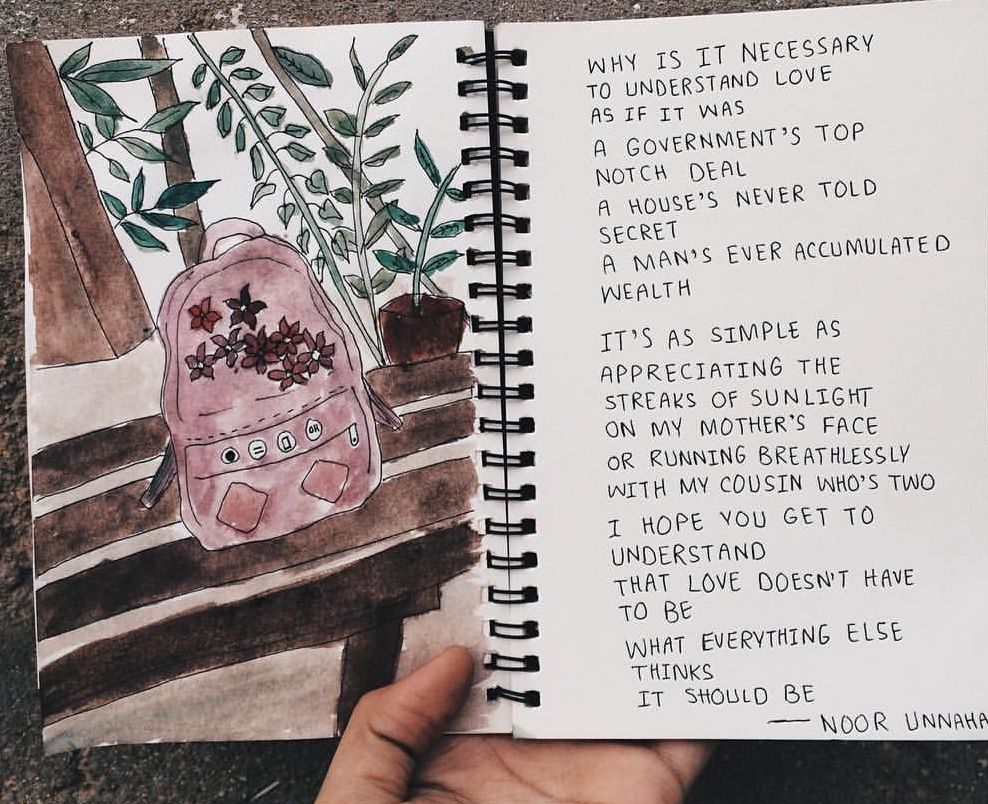 WHY IS IT NECESSARY
TO UNDERSTAND LOVE
AS IF IT WAS
A GOVERNMENT'S TOP
NOTCH DEAL
A HOUSE'S NEVER TOLD
SECRET
A MAN'S EVER ACCUMULATED
WEALTH
IT'S AS SIMPLE AS
APPRECIATING THE
STREAKS OF SUNLIGHT
ON MY MOTHER'S FACE
OR RUNNING BREATHLESSLY
WITH MY COUSIN WHO'S TWO
I HOPE YOU GET TO
UNDERSTAND
THAT LOVE DOESN'T HAVE
TO BE
WHAT EVERYTHING ELSE
THINKS
IT SHOULD BE
— NOOR UNNAHA